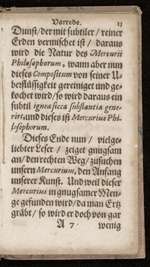 Vorrede. 13
Dunst/ der mit subtiler / reiner
Erden vermischet ist / daraus
wird die Natur des Mercurii
Philosophorum, wann aber nun
dieses Compositum von seiner U-
beständigkeit gereiniget und ge-
kochet wird/ so wird daraus ein
subtil ignea sicca substantia gene-
rirt, und dieses ist Mercurius Phi-
losophorum.
Dieses Ende nun / vielge-
liebter Leser / zeiget gnugsam
an/ den rechten Weg/ zusuchen
unsern Mercurium, den Anfang
unserer Kunst. Und weil dieser
Mercurius in gnugsamer Men-
ge gefunden wird/ da man Ertz
gräbt/ so wird er doch von gar
A 7 wenig